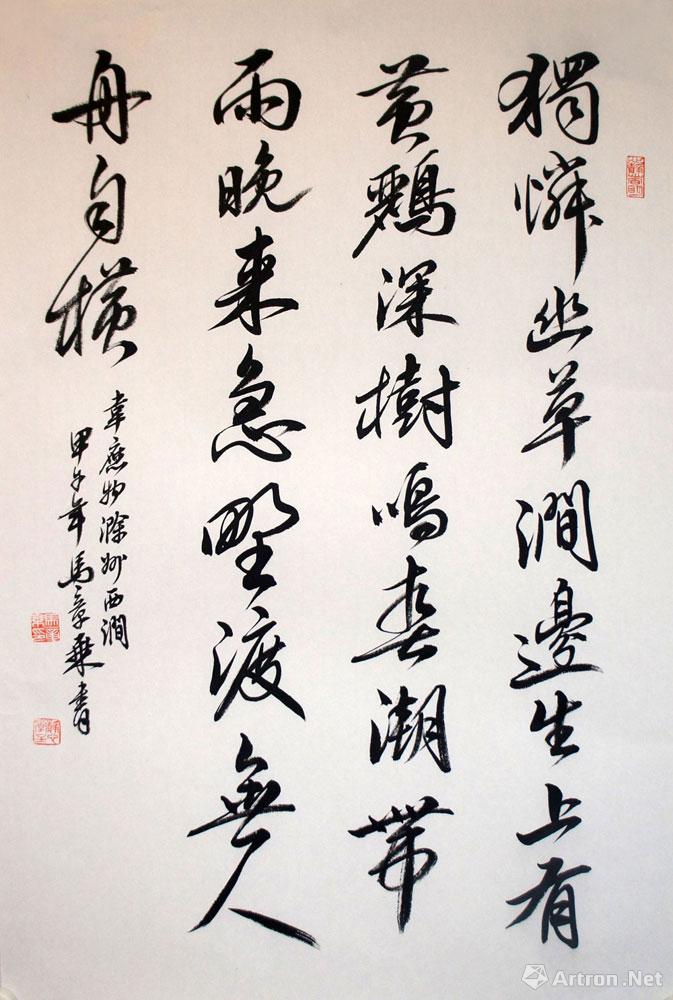 獨憐幽草澗邊生上有
黃鸝深樹鳴春潮帶
雨晚来急野渡無人
舟自橫
韋應物滁州西澗
甲午年馬章乘書
Artron.Net